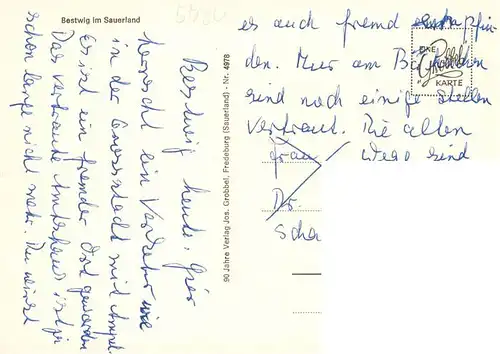 Bestwig im Sauerland
Bestwig heute: Hier
herrscht ein Verkehr wie
in der Grossstadt mit Ampel.
Es ist ein fremder Ort geworden
Das vertraute Amtshaus ist ja
schon lange nicht mehr. Du wirst
es auch fremd empfin-
den. Nur am
sind noch einige Stellen
vertraut. Die alten
Wege sind
Frau
Dr.
Scha
EINE
Grobbel
KARTE
90 Jahre Verlag Jos. Grobbel, Fredeburg (Sauerland) - Nr. 4978